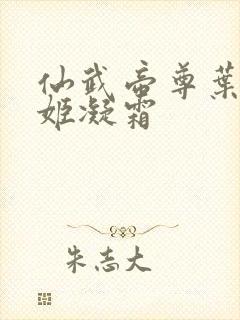 仙武帝尊葉
姬凝霜
朱志大